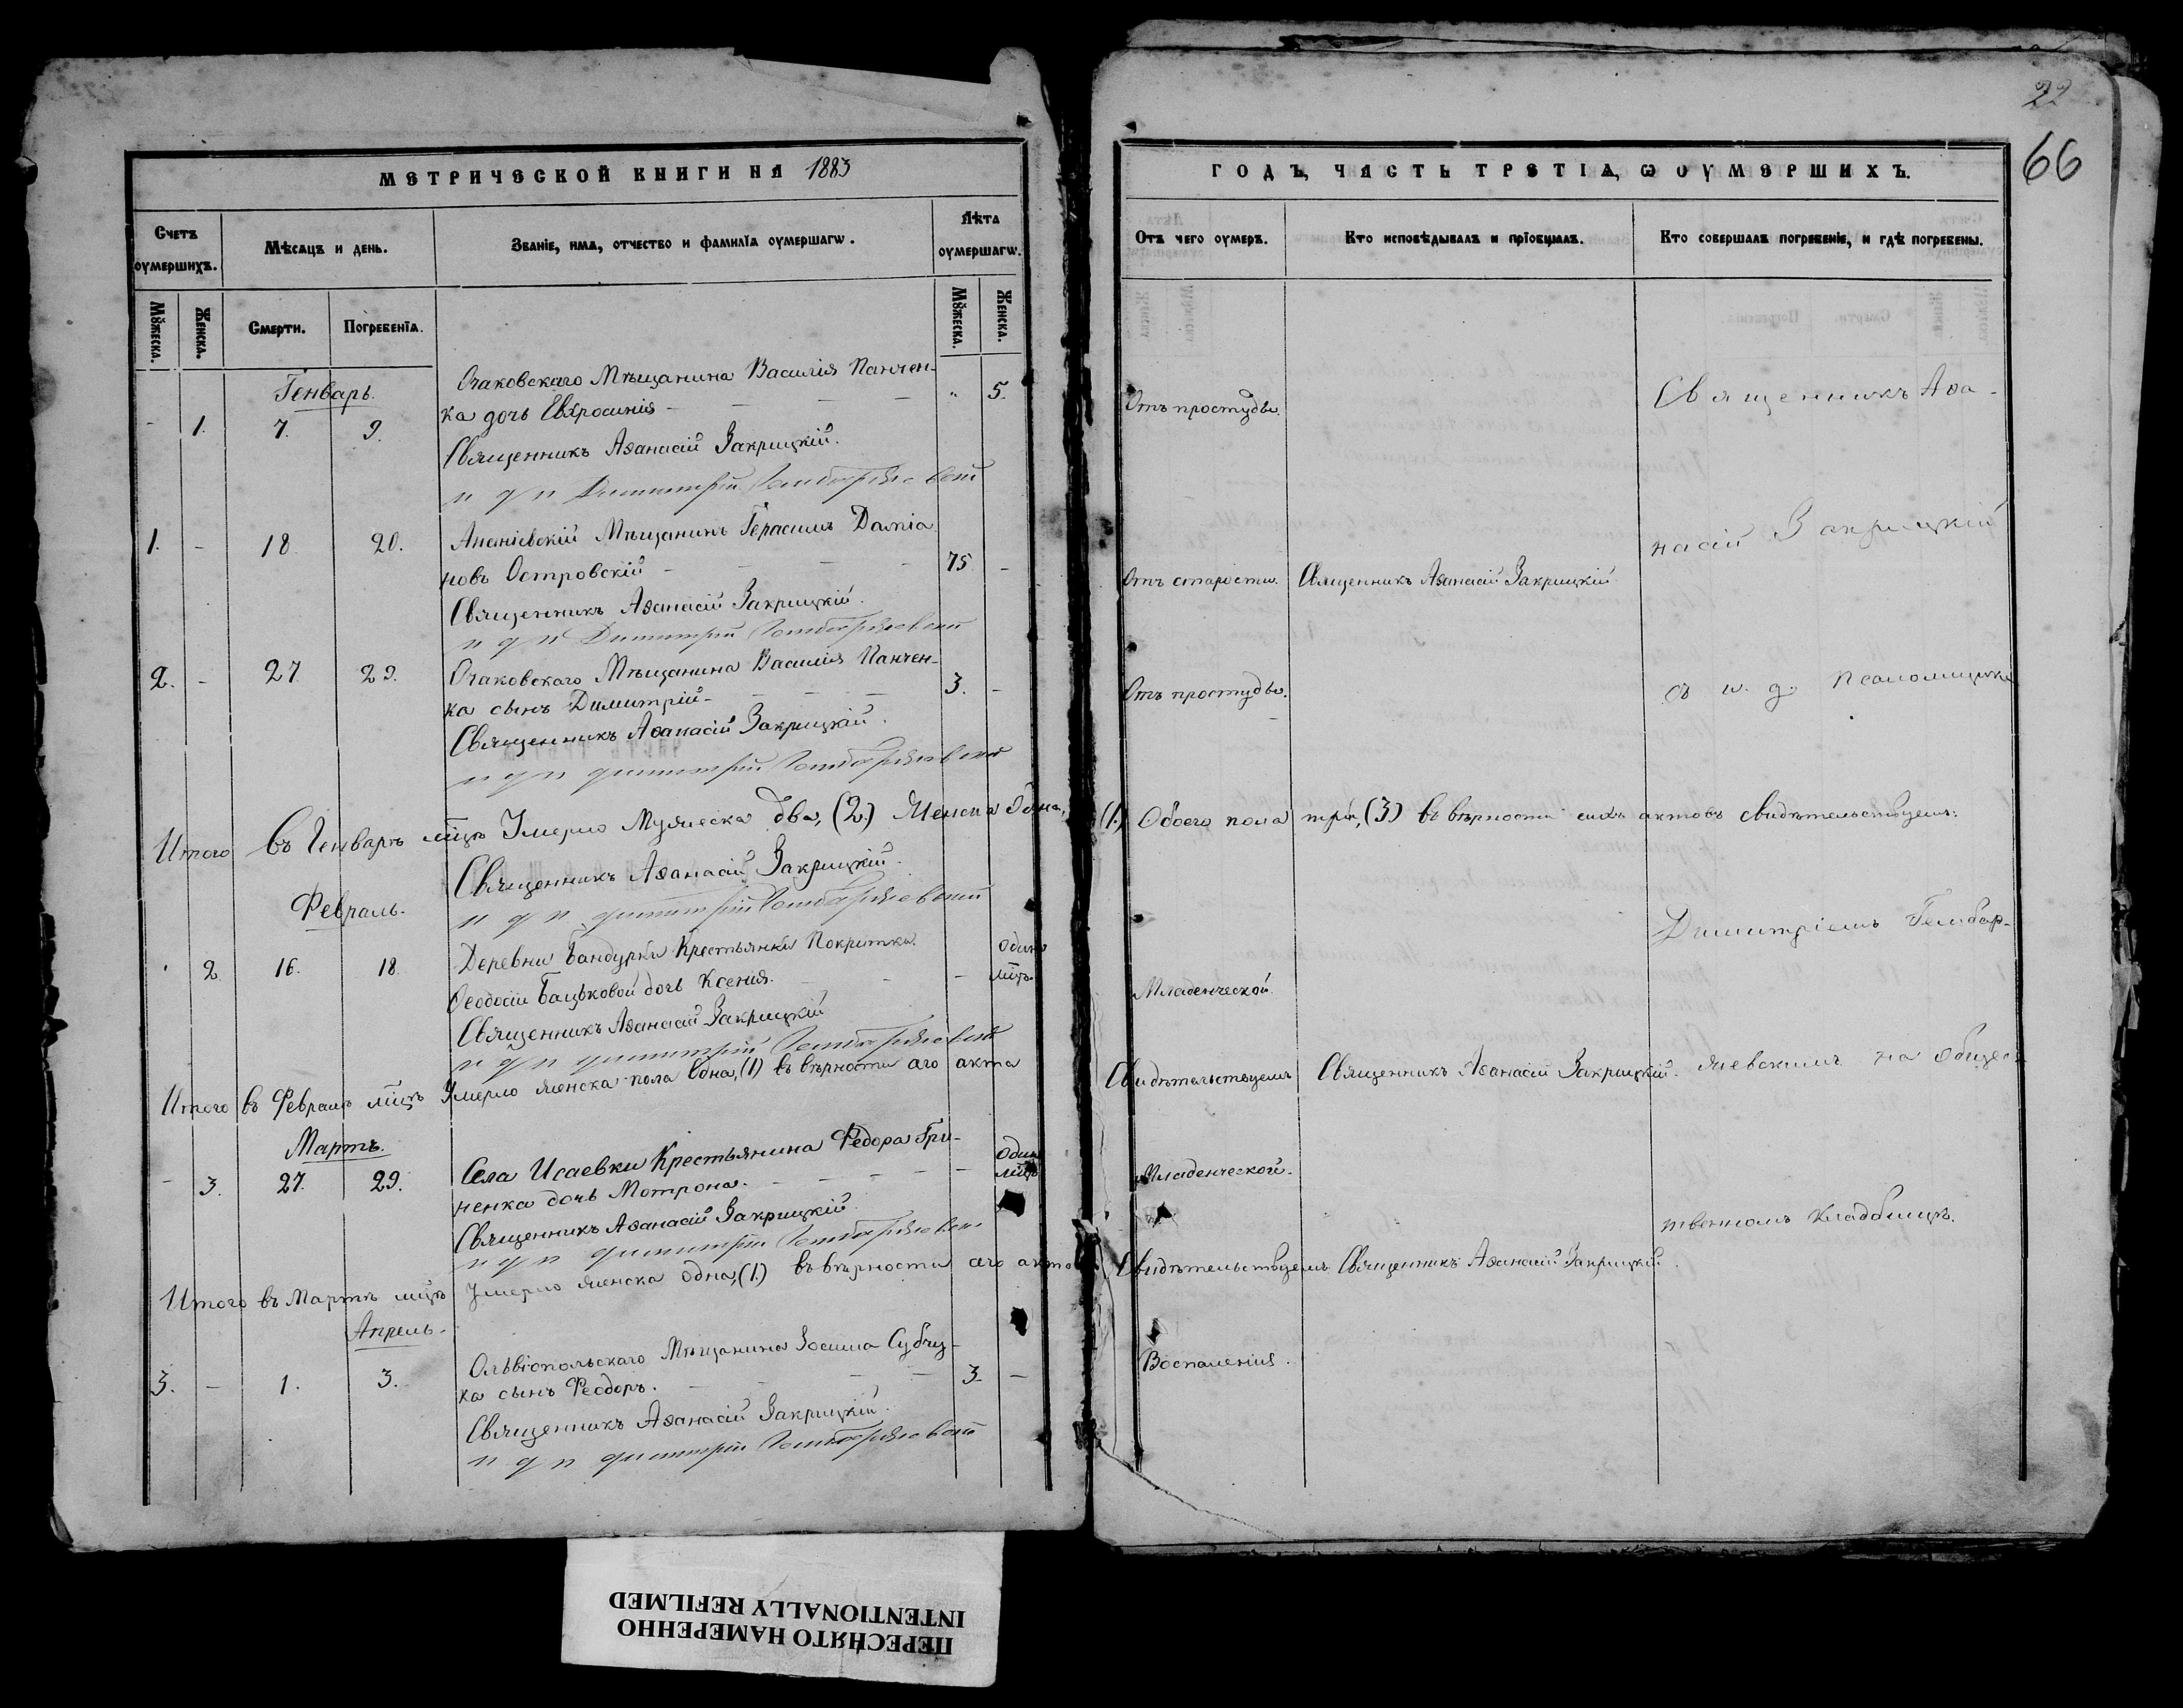 22
66
МЕТРИЧЕСКОЙ КНИГИ НА 1883
ГОДЪ, ЧАСТЬ ТРЕТІѦ, Ѡ ОУМЕРШИХЪ.
Счетъ оумершихъ.
Мѣсѧцъ и день.
Званіе, имѧ, отчество и фамиліѧ оумершагѡ.
Лѣта оумершагѡ.
Отъ чего оумеръ.
Кто исповѣдывалъ и пріобщалъ.
Кто совершалъ погребеніе, и гдѣ погребены.
Мꙋжеска.
Женска.
Смерти.
Погребеніѧ.
Мꙋжеска.
Женска.
Генварь.
Очаковскаго Мѣщанина Василія Панчен-
- 1. 7. 9. ка дочь Евфросинія - " 5. Отъ простуды. Священникъ Аѳа-
Священникъ Аѳанасій Закрицкій.
и д п Димитрій
1. - 18. 20. Ананіевскій Мѣщанинъ Герасимъ Даміа
новъ Островскій - 75 - Отъ старости. Священникъ Аѳанасій Закрицкій насій Закрицкій
Священникъ Аѳанасій Закрицкій.
и д п Димитрій
2. - 27. 29. Очаковскаго Мѣщанина Василія Панчен-
ка сынъ Димитрій - 3. - Отъ простуды. съ и. д. псаломщика
Священникъ Аѳанасій Закрицкій.
и д п Димитрій
Итого въ Генварѣ мцѣ Умерло Мужеска два, (2.) Женска одна, (1.) Обоего пола три, (3) въ вѣрности сихъ актовъ свидѣтельствуемъ:
Священникъ Аѳанасій Закрицкій.
и д п Димитрій
Февраль.
Деревни Бандурки Крестьянки Покритки
- 2 16. 18. Ѳеодосіи Бацьковой дочь Ксенія. - одинъ мцъ. Младенческой. Димитріемъ Гембар-
Священникъ Аѳанасій Закрицкій
и д п Димитрій
Итого въ Февралѣ мцѣ Умерло женска пола одна, (1) въ вѣрности сего акта Свидѣтельствуемъ Священникъ Аѳанасій Закрицкій. жевскимъ на общес-
Мартъ.
- 3. 27. 29. Села Исаевки Крестьянина Федора Гри-
ненка дочь Мотрона. - одинъ мцъ Младенческой.
Священникъ Аѳанасій Закрицкій. твенномъ кладбищѣ.
и д п Димитрій
Итого въ Мартѣ мцѣ Умерло женска одна, (1.) въ вѣрности сего акта Свидѣтельствуемъ Священникъ Аѳанасій Закрицкій
Апрель.
Ольвіопольскаго Мѣщанина Зосима Субчу-
3. - 1. 3. ка сынъ Феодоръ. - 3. - Воспаленія.
Священникъ Аѳанасій Закрицкій.
и д п Димитрій
ПЕРЕСНЯТО НАМЕРЕННО
INTENTIONALLY REFILMED